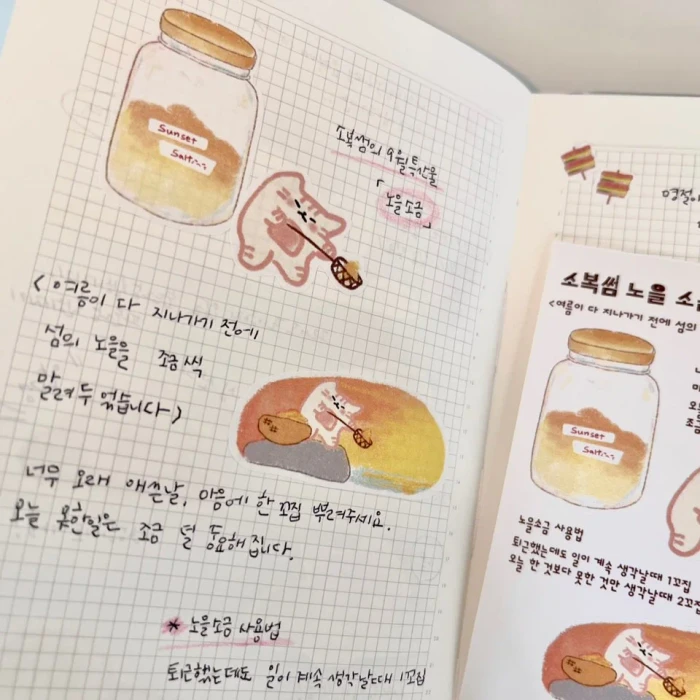 Sunset
Salt
소복썸의 9월 특산물
「노을소금」
<여름이 다 지나가기 전에
섬의 노을을 조금씩
말려두었습니다>
너무 오래 애쓴날, 마음에 한 꼬집 뿌려주세요.
오늘 못한일은 조금 덜 중요해집니다.
* 노을소금 사용법
퇴근했는데도 일이 계속 생각날때 1꼬집
소복썸 노을
<여름이 다 지나가기 전에 섬의
Sunset
Salt
노을소금 사용법
퇴근했는데도 일이 계속 생각날때 1꼬집
오늘 한 것보다 못한 것만 생각날때 2꼬집